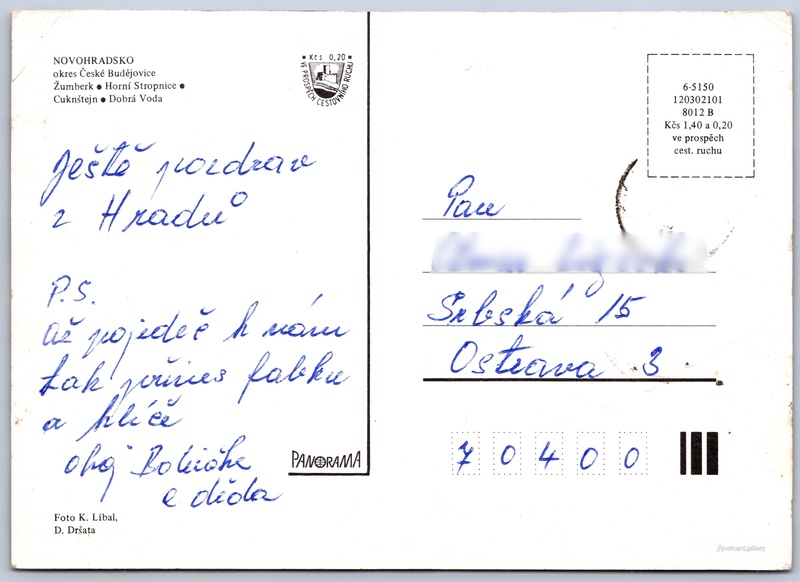 NOVOHRADSKO
okres České Budějovice
Žumberk ● Horní Stropnice ●
Cuknštejn ● Dobrá Voda
Kčs 0,20
VE PROSPĚCH CESTOVNÍHO RUCHU
6-5150
120302101
8012 B
Kčs 1,40 a 0,20
ve prospěch
cest. ruchu
Ještě pozdrav
z Hradů
P.S.
až pojedeč k nám
tak přines fabku
a klíče
ahoj
a děda
PANORAMA
Foto K. Líbal,
D. Dršata
Pan
Srbská 15
Ostrava 3
70400
postcard.gallery